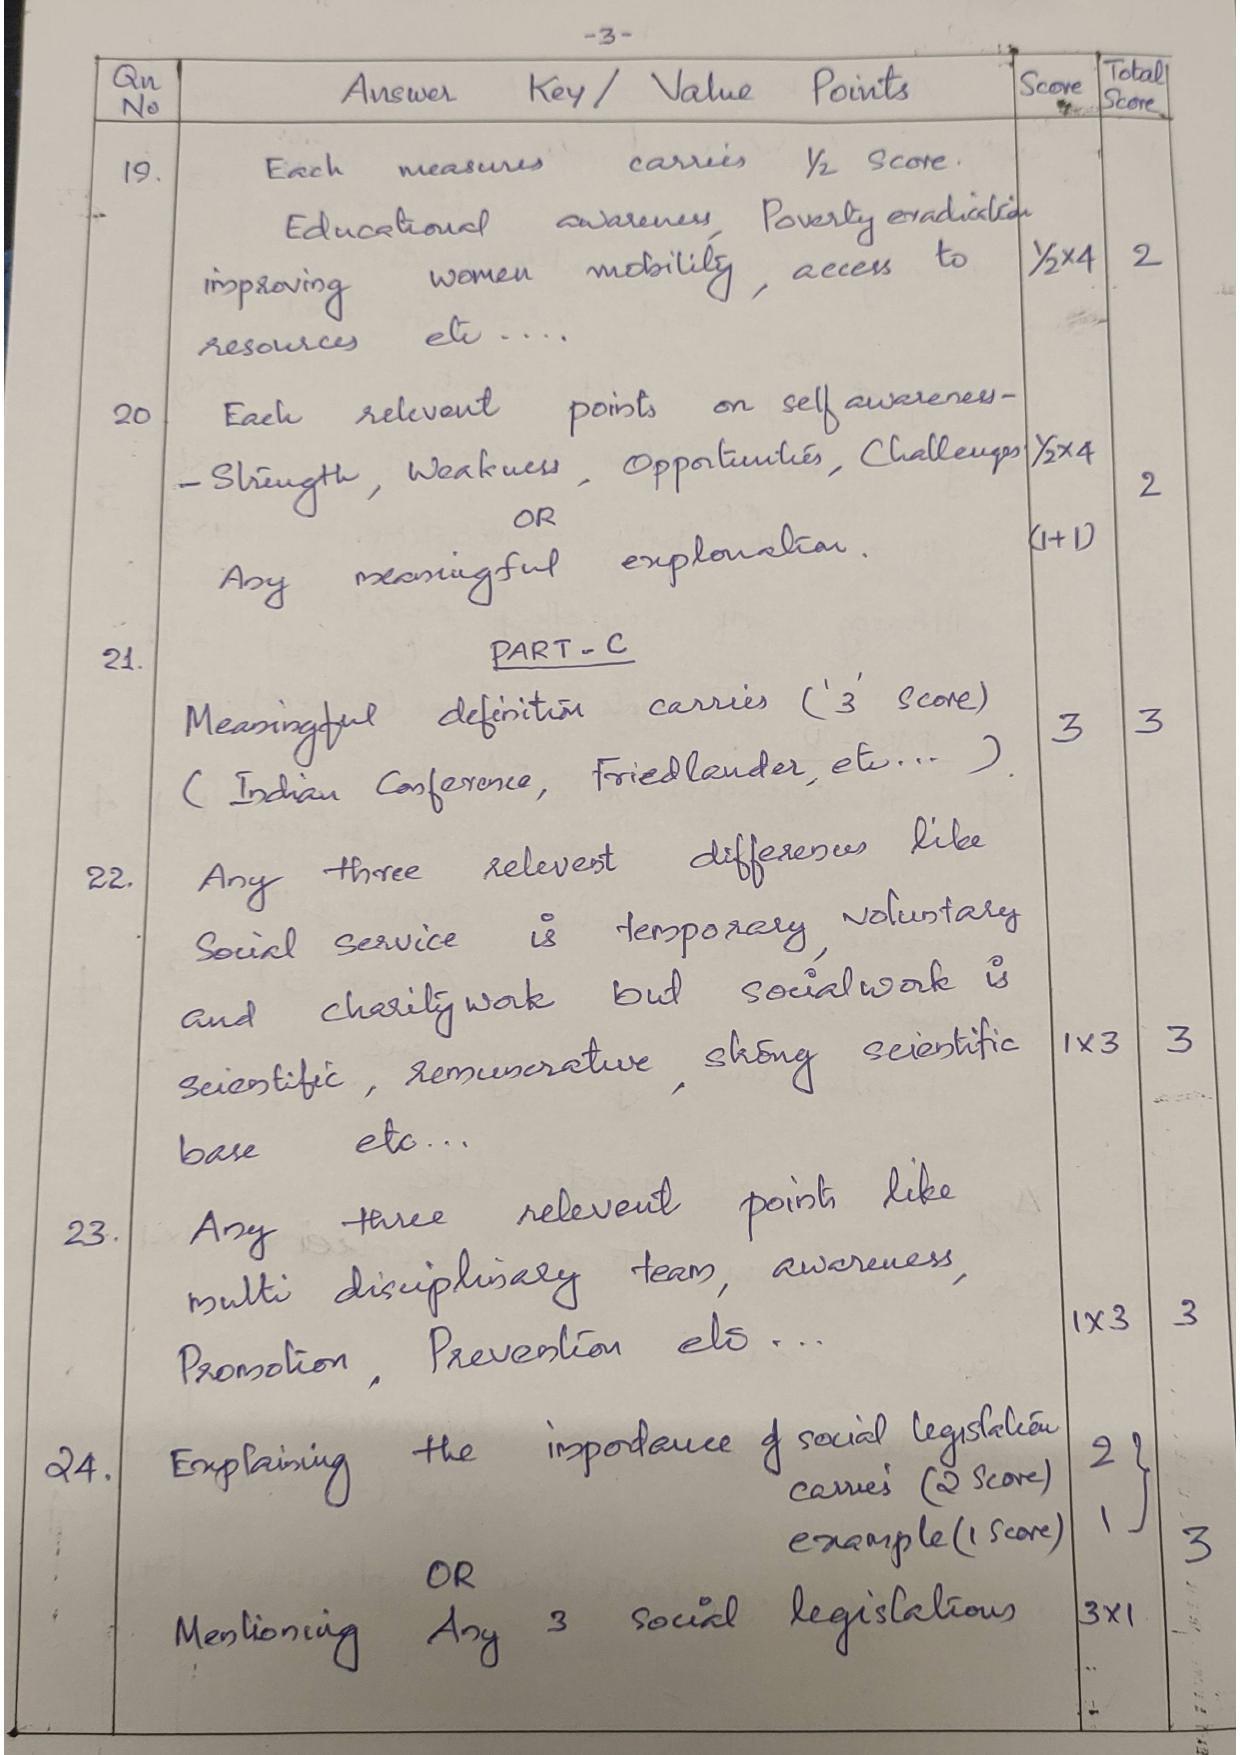 -3-
Qn No Answer Key/ Value Points Score Total Score
19. Each measures carries ½ Score.
Educational awareness, Poverty eradication
improving women mobility, access to ½x4 2
resources etc ....
20 Each relevent points on self awareness-
- Strength, Weakness, Opportunities, Challenges ½x4
2
OR
Any meaningful explonation. (1+1)
PART-C
21.
Meaningful definition carries ('3' Score)
3 3
( Indian Conference, Friedlander, etc... ).
22. Any three relevent differences like
Social service is temporary, voluntary
and charity work but socialwork is
scientific, remunerative, strong scientific 1x3 3
base etc...
23. Any three relevent points like
multi disciplinary team, awareness,
1x3 3
Promotion, Prevention etc ...
24. Explaining the importance of social legislation 2
carries (2 Score)
example (1 Score) 1
3
OR
Mentioning Any 3 social legislations 3x1